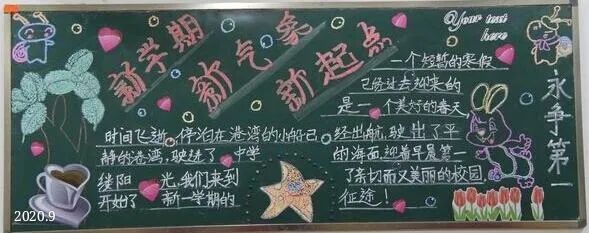 新学期
新气象
新起点
Your text
here
一个短暂的寒假
已经过去迎来的
是一个美好的春天
永争第一
时间飞逝 停泊在港湾的小船已经出航,驶出了平
静的港湾,驶进了 中学的海面,迎着早晨第一
缕阳 光,我们来到了亲切而又美丽的校园,
开始了 新一学期的征途!
2020.9